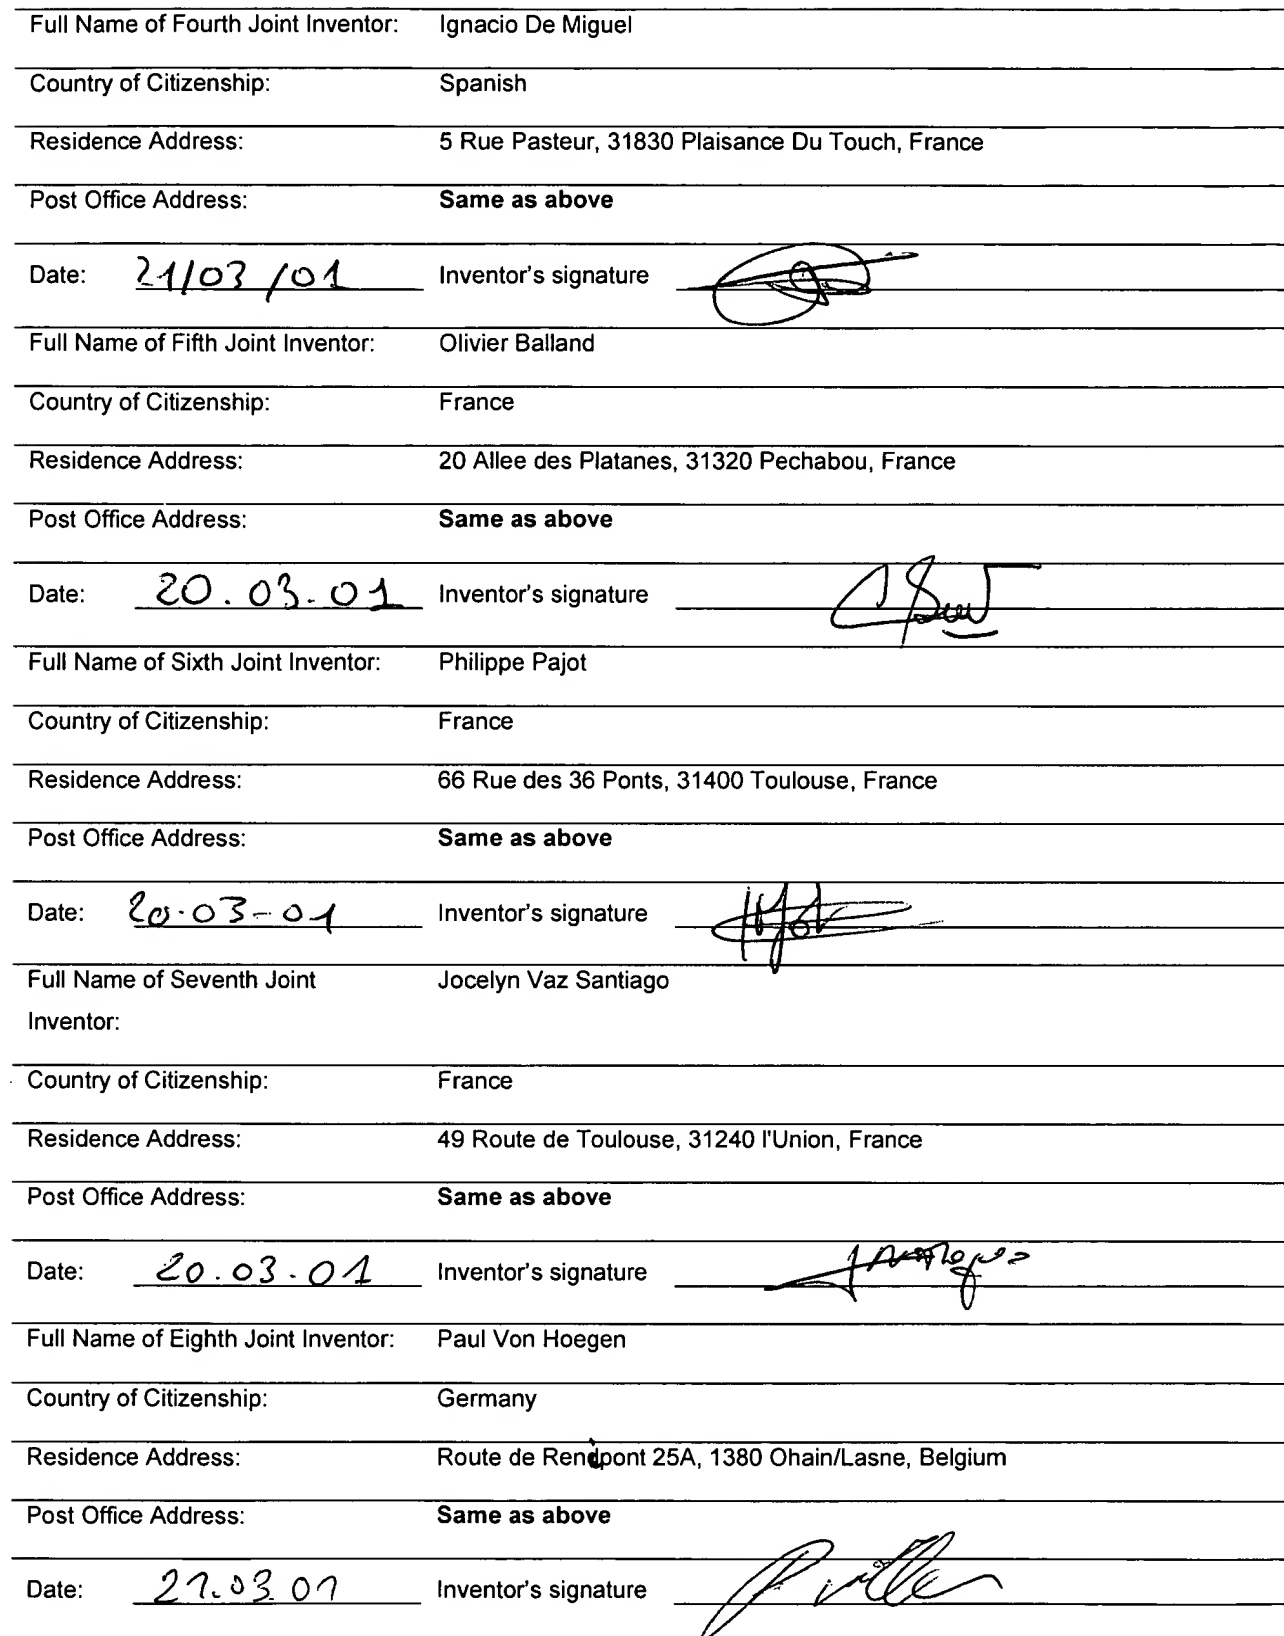 Full Name of Fourth Joint Inventor: Ignacio De Miguel
Country of Citizenship: Spanish
Residence Address: 5 Rue Pasteur, 31830 Plaisance Du Touch, France
Post Office Address: Same as above
Date: 21/03/01 Inventor's signature
Full Name of Fifth Joint Inventor: Olivier Balland
Country of Citizenship: France
Residence Address: 20 Allee des Platanes, 31320 Pechabou, France
Post Office Address: Same as above
Date: 20.03.01 Inventor's signature
Full Name of Sixth Joint Inventor: Philippe Pajot
Country of Citizenship: France
Residence Address: 66 Rue des 36 Ponts, 31400 Toulouse, France
Post Office Address: Same as above
Date: 20.03-01 Inventor's signature
Full Name of Seventh Joint Jocelyn Vaz Santiago
Inventor:
Country of Citizenship: France
Residence Address: 49 Route de Toulouse, 31240 l'Union, France
Post Office Address: Same as above
Date: 20.03.01 Inventor's signature
Full Name of Eighth Joint Inventor: Paul Von Hoegen
Country of Citizenship: Germany
Residence Address: Route de 25A, 1380 Ohain/Lasne, Belgium
Post Office Address: Same as above
Date: 21.03.01 Inventor's signature